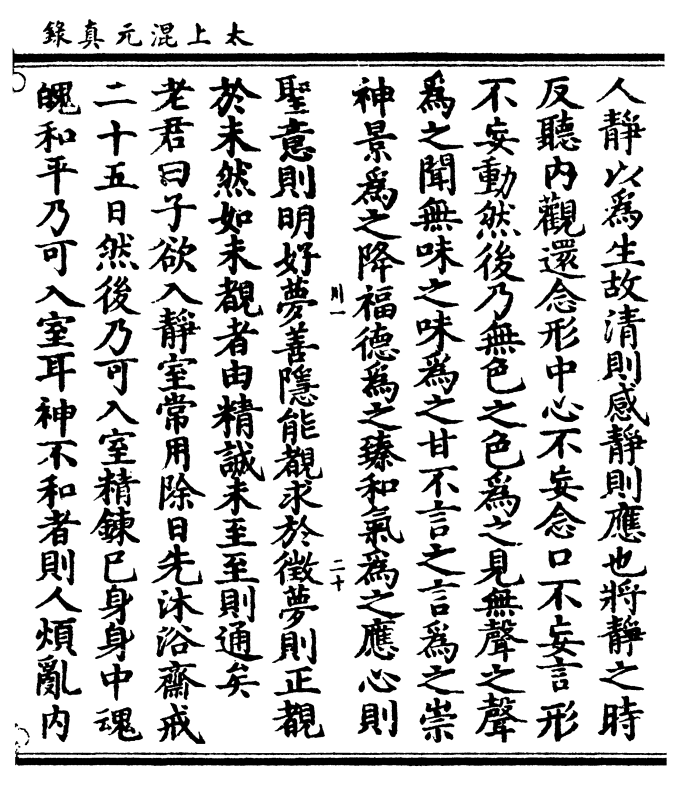 太上混元真錄
人靜以為生故清則感靜則應也將靜之時
反聽內觀還念形中心不妄念口不妄言形
不妄動然後乃無色之色為之見無聲之聲
為之聞無味之味為之甘不言之言為之崇
神景為之降福德為之臻和氣為之應心則
川一
二十
聖意則明好夢善隱能覩求於徵夢則正覩
於未然如未覩者由精誠未至至則通矣
老君曰子欲入靜室常用除日先沐浴齋戒
二十五日然後乃可入室精鍊已身身中魂
魄和平乃可入室耳神不和者則人煩亂內